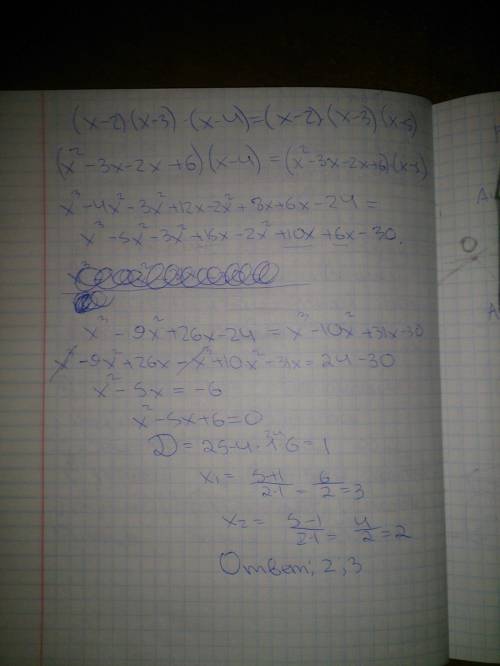 (x-2)(x-3)·(x-4)=(x-2)(x-3)(x-5)
(x²-3x-2x+6)(x-4)=(x²-3x-2x+6)(x-5)
x³-4x²-3x²+12x-2x²+8x+6x-24=
x³-5x²-3x²+15x-2x²+10x+6x-30.
x³-9x²+26x-24=x³-10x²+31x-30
x³-9x²+26x-x³+10x²-31x=24-30
x²-5x=-6
x²-5x+6=0
D=25-4·1·6=1
x₁=5+1/2·1=6/2=3
x₂=5-1/2·1=4/2=2
Ответ: 2; 3